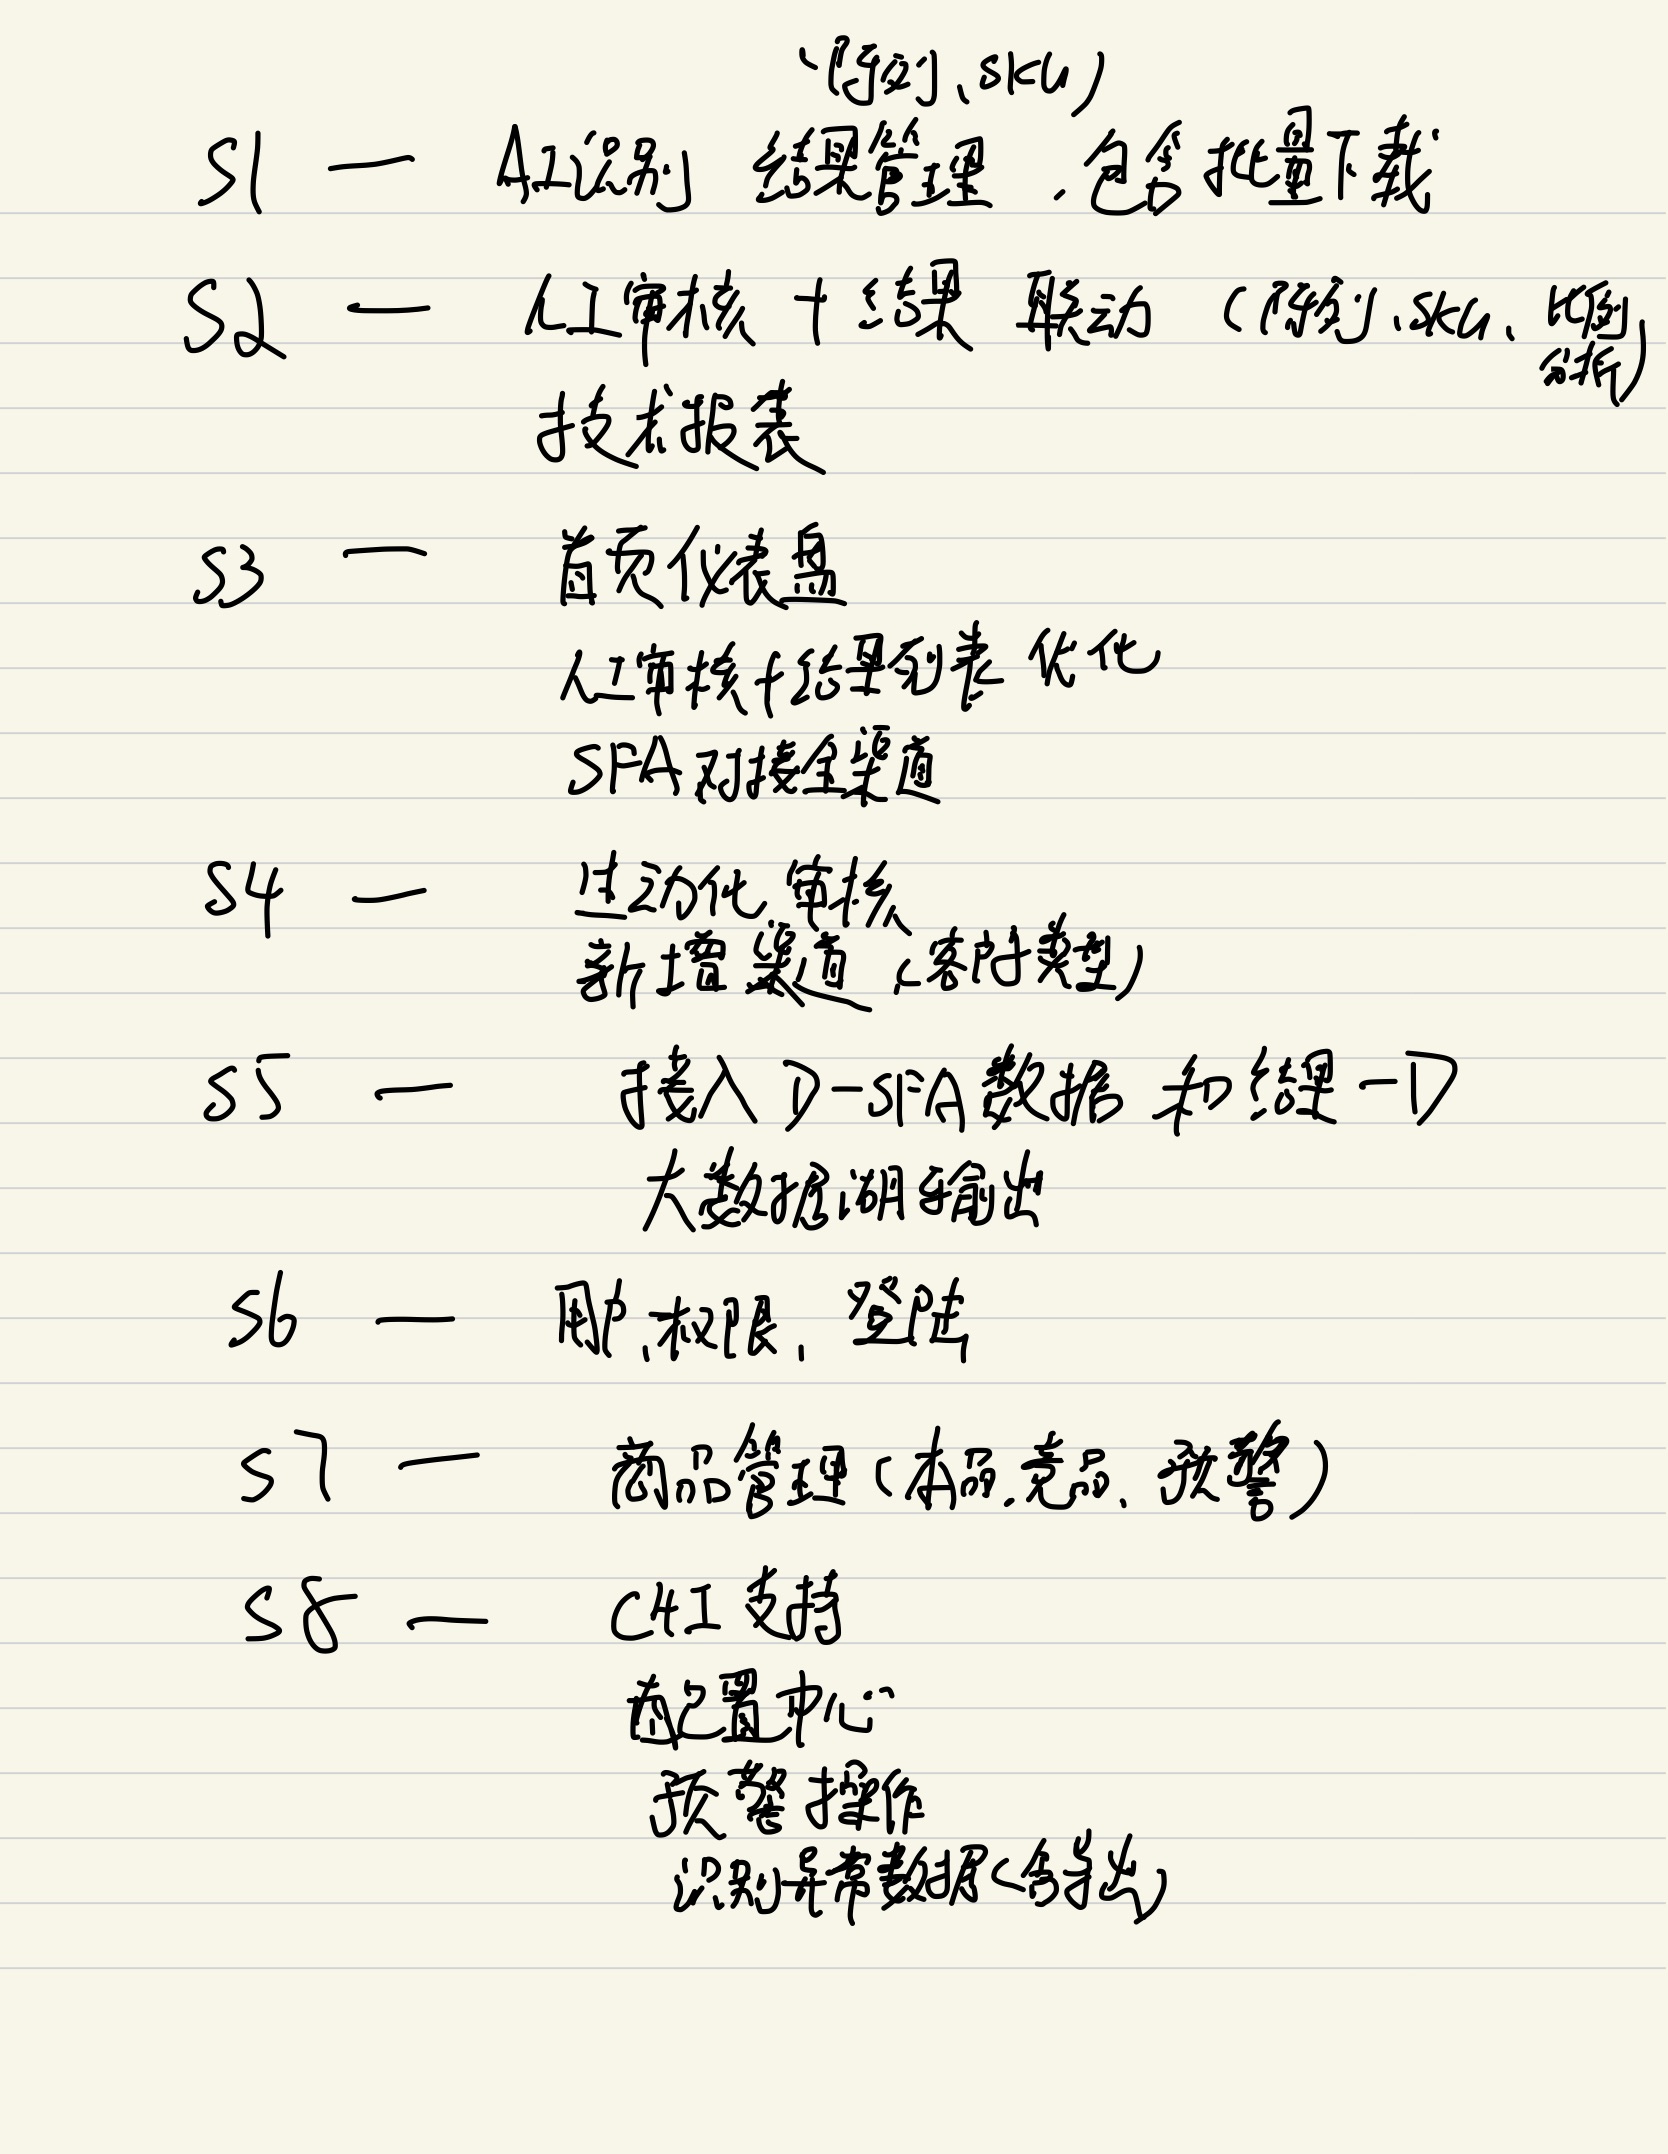 (陈列、SKU)
S1 — AI识别 结果管理、包含批量下载
S2 — 人工审核+结果 联动 (陈列、SKU、比例
分析)
技术报表
S3 — 首页仪表盘
人工审核+结果列表 优化
SFA对接全渠道
S4 — 动化审核
新增渠道(客户类型)
S5 — 接入D-SFA数据 和结果-D
大数据湖输出
S6 — 用户、权限、登陆
S7 — 商品管理(本品、竞品、预警)
S8 — 支持
配置中心
预警操作
识别异常数据(含导出)